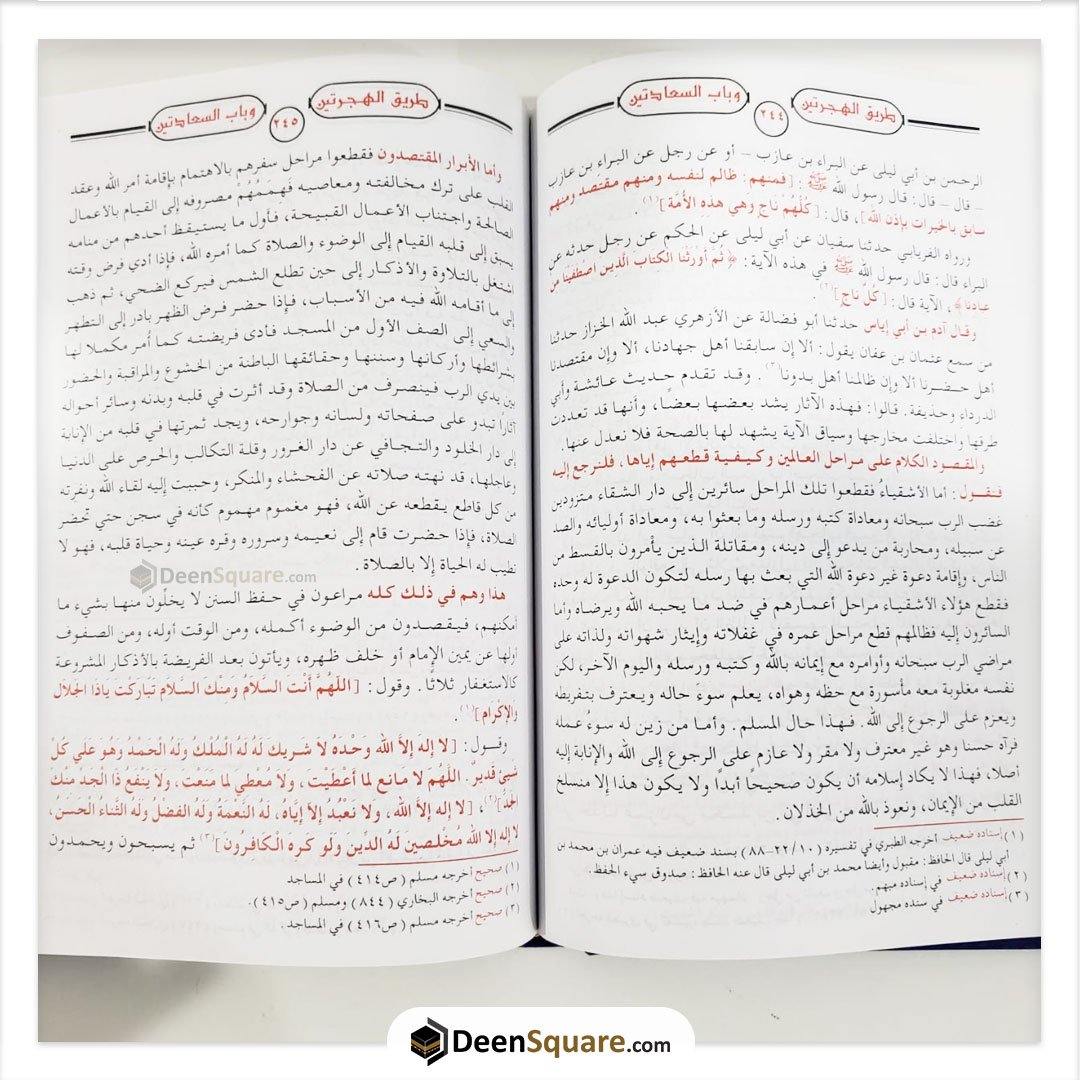 طريق الهجرتين ٢٤٤ وباب السعادتين
الرحمن بن أبي ليلى عن البراء بن عازب – أو عن رجل عن البراء بن عازب
– قال – قال: قال رسول الله ﷺ: [فمنهم: ظالم لنفسه ومنهم مقتصد ومنهم
سابق بالخيرات بإذن الله]، قال: [كُلُّهُمْ نَاجٍ وهي هذه الأُمَّة](١).
ورواه الفريابي حدثنا سفيان عن أبي ليلى عن الحكم عن رجل حدثه عن
البراء قال: قال رسول الله ﷺ في هذه الآية: ﴿ثُمَّ أَوْرَثْنَا الْكِتَابَ الَّذِينَ اصْطَفَيْنَا مِنْ
عِبَادِنَا﴾، الآية قال: [كُلٌّ نَاجٍ](٢).
وقال آدم بن أبي إياس حدثنا أبو فضالة عن الأزهري عبد الله الخزاز حدثنا
من سمع عثمان بن عفان يقول: ألا إن سابقنا أهل جهادنا، ألا وإن مقتصدنا
أهل حضرنا ألا وإن ظالمنا أهل بدونا(٣). وقد تقدم حديث عائشة وأبي
الدرداء وحذيفة. قالوا: فهذه الآثار يشد بعضها بعضا، وأنها قد تعددت
طرقها واختلفت مخارجها وسياق الآية يشهد لها بالصحة فلا نعدل عنها.
والمقصود الكلام على مراحل العالمين وكيفية قطعهم إياها، فلنرجع إليه
فنقول: أما الأشقياءُ فقطعوا تلك المراحل سائرين إلى دار الشقاء متزودين
غضب الرب سبحانه ومعاداة كتبه ورسله وما بعثوا به، ومعاداة أوليائه والصد
عن سبيله، ومحاربة من يدعو إلى دينه، ومقاتلة الذين يأمرون بالقسط من
الناس، وإقامة دعوة غير دعوة الله التي بعث بها رسله لتكون الدعوة له وحده
فقطع هؤلاء الأشقياء مراحل أعمارهم في ضد ما يحبه الله ويرضاه وأما
السائرون إليه فظالمهم قطع مراحل عمره في غفلاته وإيثار شهواته ولذاته على
مراضي الرب سبحانه وأوامره مع إيمانه بالله وكتبه ورسله واليوم الآخر، لكن
نفسه مغلوبة معه مأسورة مع حظه وهواه، يعلم سوءَ حاله ويعترف بتفريطه
ويعزم على الرجوع إلى الله. فهذا حال المسلم. وأما من زين له سوءُ عمله
فرآه حسنا وهو غير معترف ولا مقر ولا عازم على الرجوع إلى الله والإنابة إليه
أصلا، فهذا لا يكاد إسلامه أن يكون صحيحًا أبدًا ولا يكون هذا إلا منسلخ
القلب من الإيمان، ونعوذ بالله من الخذلان.
(١) إسناده ضعيف أخرجه الطبري في تفسيره (١٠/٢٢–٨٨) بسند ضعيف فيه عمران بن محمد بن
أبي ليلى قال الحافظ: مقبول وأيضاً محمد بن أبي ليلى قال عنه الحافظ: صدوق سيء الحفظ.
(٢) إسناده ضعيف في إسناده مبهم.
(٣) إسناده ضعيف في سنده مجهول
طريق الهجرتين ٢٤٥ وباب السعادتين
وأما الأبرار المقتصدون فقطعوا مراحل سفرهم بالاهتمام بإقامة أمر الله وعقد
القلب على ترك مخالفته ومعاصيه فَهِمَمُهُمْ مصروفه إلى القيام بالأعمال
الصالحة واجتناب الأعمال القبيحة، فأول ما يستيقظ أحدهم من منامه
يسبق إلى قلبه القيام إلى الوضوء والصلاة كما أمره الله، فإذا أدي فرض وقته
اشتغل بالتلاوة والأذكار إلى حين تطلع الشمس فيركع الضحي، ثم ذهب
إلى ما أقامه الله فيه من الأسباب، فإذا حضر فرض الظهر بادر إلى التطهر
والسعي إلى الصف الأول من المسجد فأدى فريضته كما أُمر مكملا لها
بشرائطها وأركانها وسننها وحقائقها الباطنة من الخشوع والمراقبة والحضور
بين يدي الرب فينصرف من الصلاة وقد أثرت في قلبه وبدنه وسائر أحواله
آثاراً تبدو على صفحاته ولسانه وجوارحه، ويجد ثمرتها في قلبه من الإنابة
إلى دار الخلود والتجافي عن دار الغرور وقلة التكالب والحرص على الدنيا
وعاجلها، قد نهته صلاته عن الفحشاء والمنكر، وحببت إليه لقاء الله ونفرته
من كل قاطع يقطعه عن الله، فهو مغموم مهموم كأنه في سجن حتي تحضر
الصلاة، فإذا حضرت قام إلى نعيمه وسروره وقره عينه وحياة قلبه، فهو لا
تطيب له الحياة إلا بالصلاة.
DeenSquare.com
هذا وهم في ذلك كله مراعون في حفظ السنن لا يخلّون منها بشيء ما
أمكنهم، فيقصدون من الوضوء أكمله، ومن الوقت أوله، ومن الصفوف
أولها عن يمين الإمام أو خلف ظهره، ويأتون بعد الفريضة بالأذكار المشروعة
كالاستغفار ثلاثًا. وقول: [اللَّهُمَّ أَنْتَ السَّلَامُ وَمِنْكَ السَّلَامُ تَبَارَكْتَ يَاذَا الجَلَالِ
وَالإِكْرَامِ](١).
وقول: [لا إله إلَّا الله وَحْدَهُ لا شريكَ لَهُ لَهُ الْمُلْكُ وَلَهُ الْحَمْدُ وَهُوَ عَلَي كُلِّ
شَيْئٍ قَدِيرٌ. اللَّهُمَّ لا مَانِعَ لِمَا أَعْطَيْتَ، وَلا مُعْطِي لِمَا مَنَعْتَ، وَلا يَنْفَعُ ذَا الْجَدِّ مِنْكَ
الْجَدُّ](٢)، [لا إله إلَّا الله، ولا نَعْبُدُ إِلَّا إِيَّاهُ، لَهُ النِّعْمَةُ وَلَهُ الفَضْلُ وَلَهُ الثَّنَاءُ الْحَسَنُ،
لا إله إلا الله مُخْلِصِينَ لَهُ الدِّينَ وَلَو كَرِهَ الْكَافِرُونَ](٣) ثم يسبحون ويحمدون
(١) صحيح أخرجه مسلم (ص٤١٤) في المساجد
(٢) صحيح أخرجه البخاري (٨٤٤) ومسلم (ص٤١٥).
(٣) صحيح أخرجه مسلم (ص٤١٦) في المساجد.
DeenSquare.com